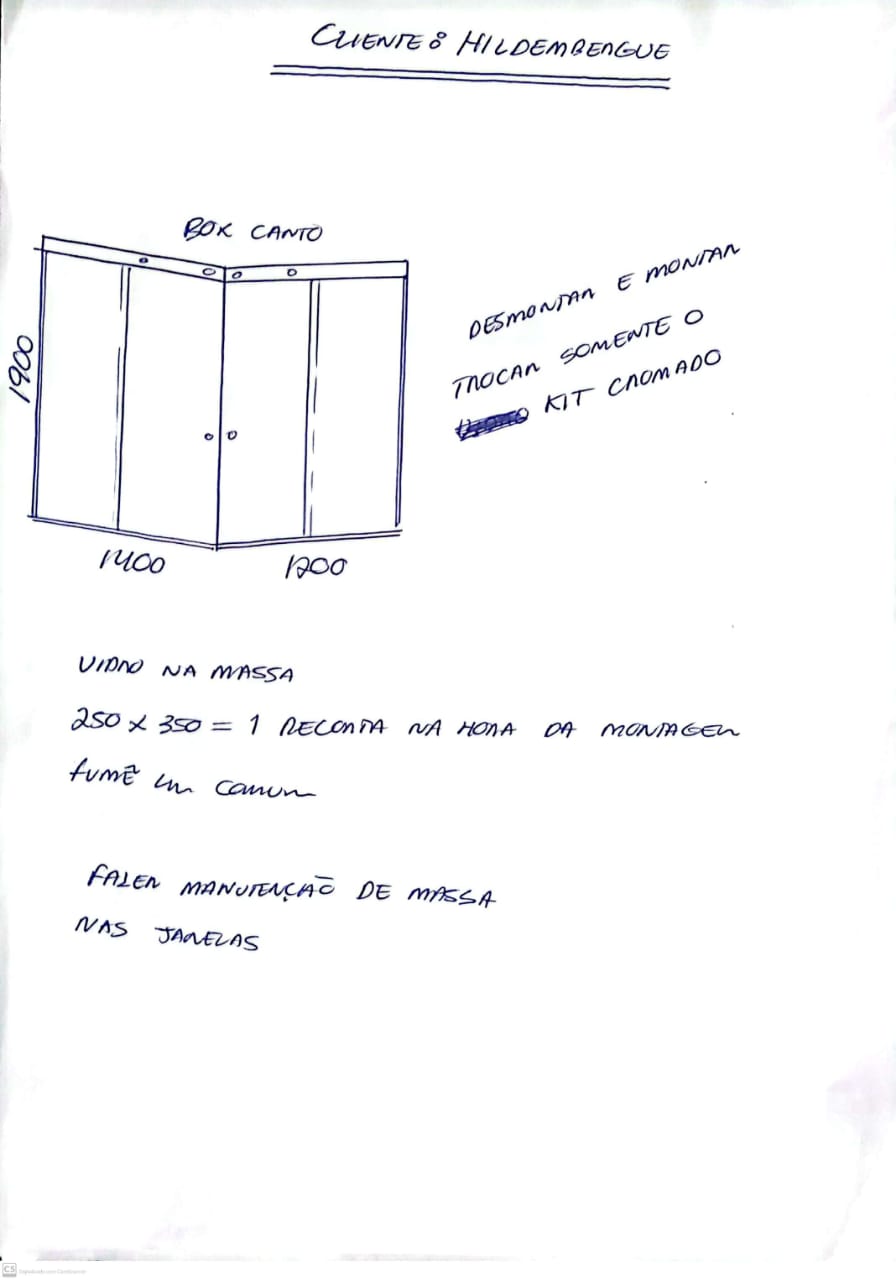 CLIENTE: HILDEMBERGUE
BOX CANTO
DESMONTAR E MONTAR
TROCAR SOMENTE O
KIT CROMADO
1900
1400
1200
VIDRO NA MASSA
250 X 350 = 1 RECORTA NA HORA DA MONTAGEM
fumê em comum
FAZER MANUTENÇÃO DE MASSA
NAS JANELAS
CS Digitalizado com CamScanner